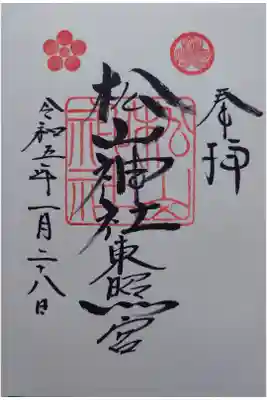 奉拝
松山神社東照宮
松山神社
令和五年一月二十八日